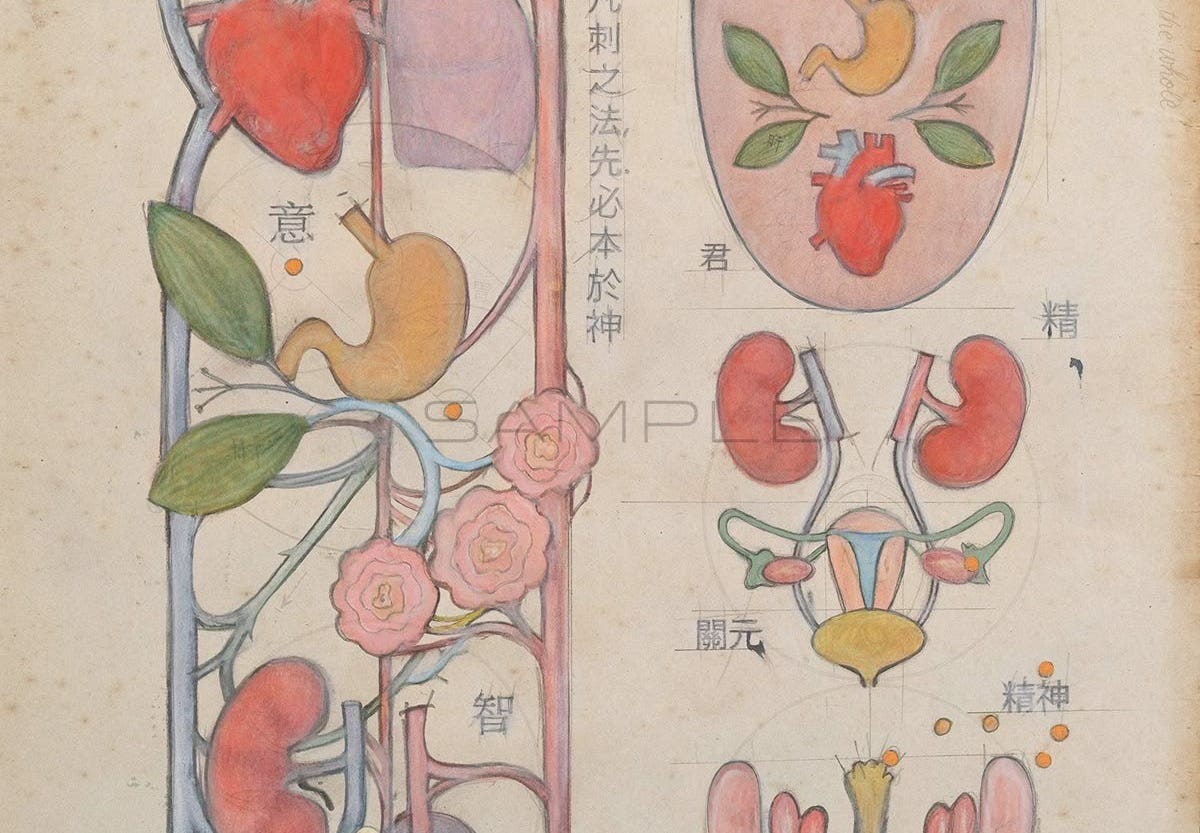 刺之法先必本於神
the whole
意
君
精
SAMPLE
肝
關元
精神
智